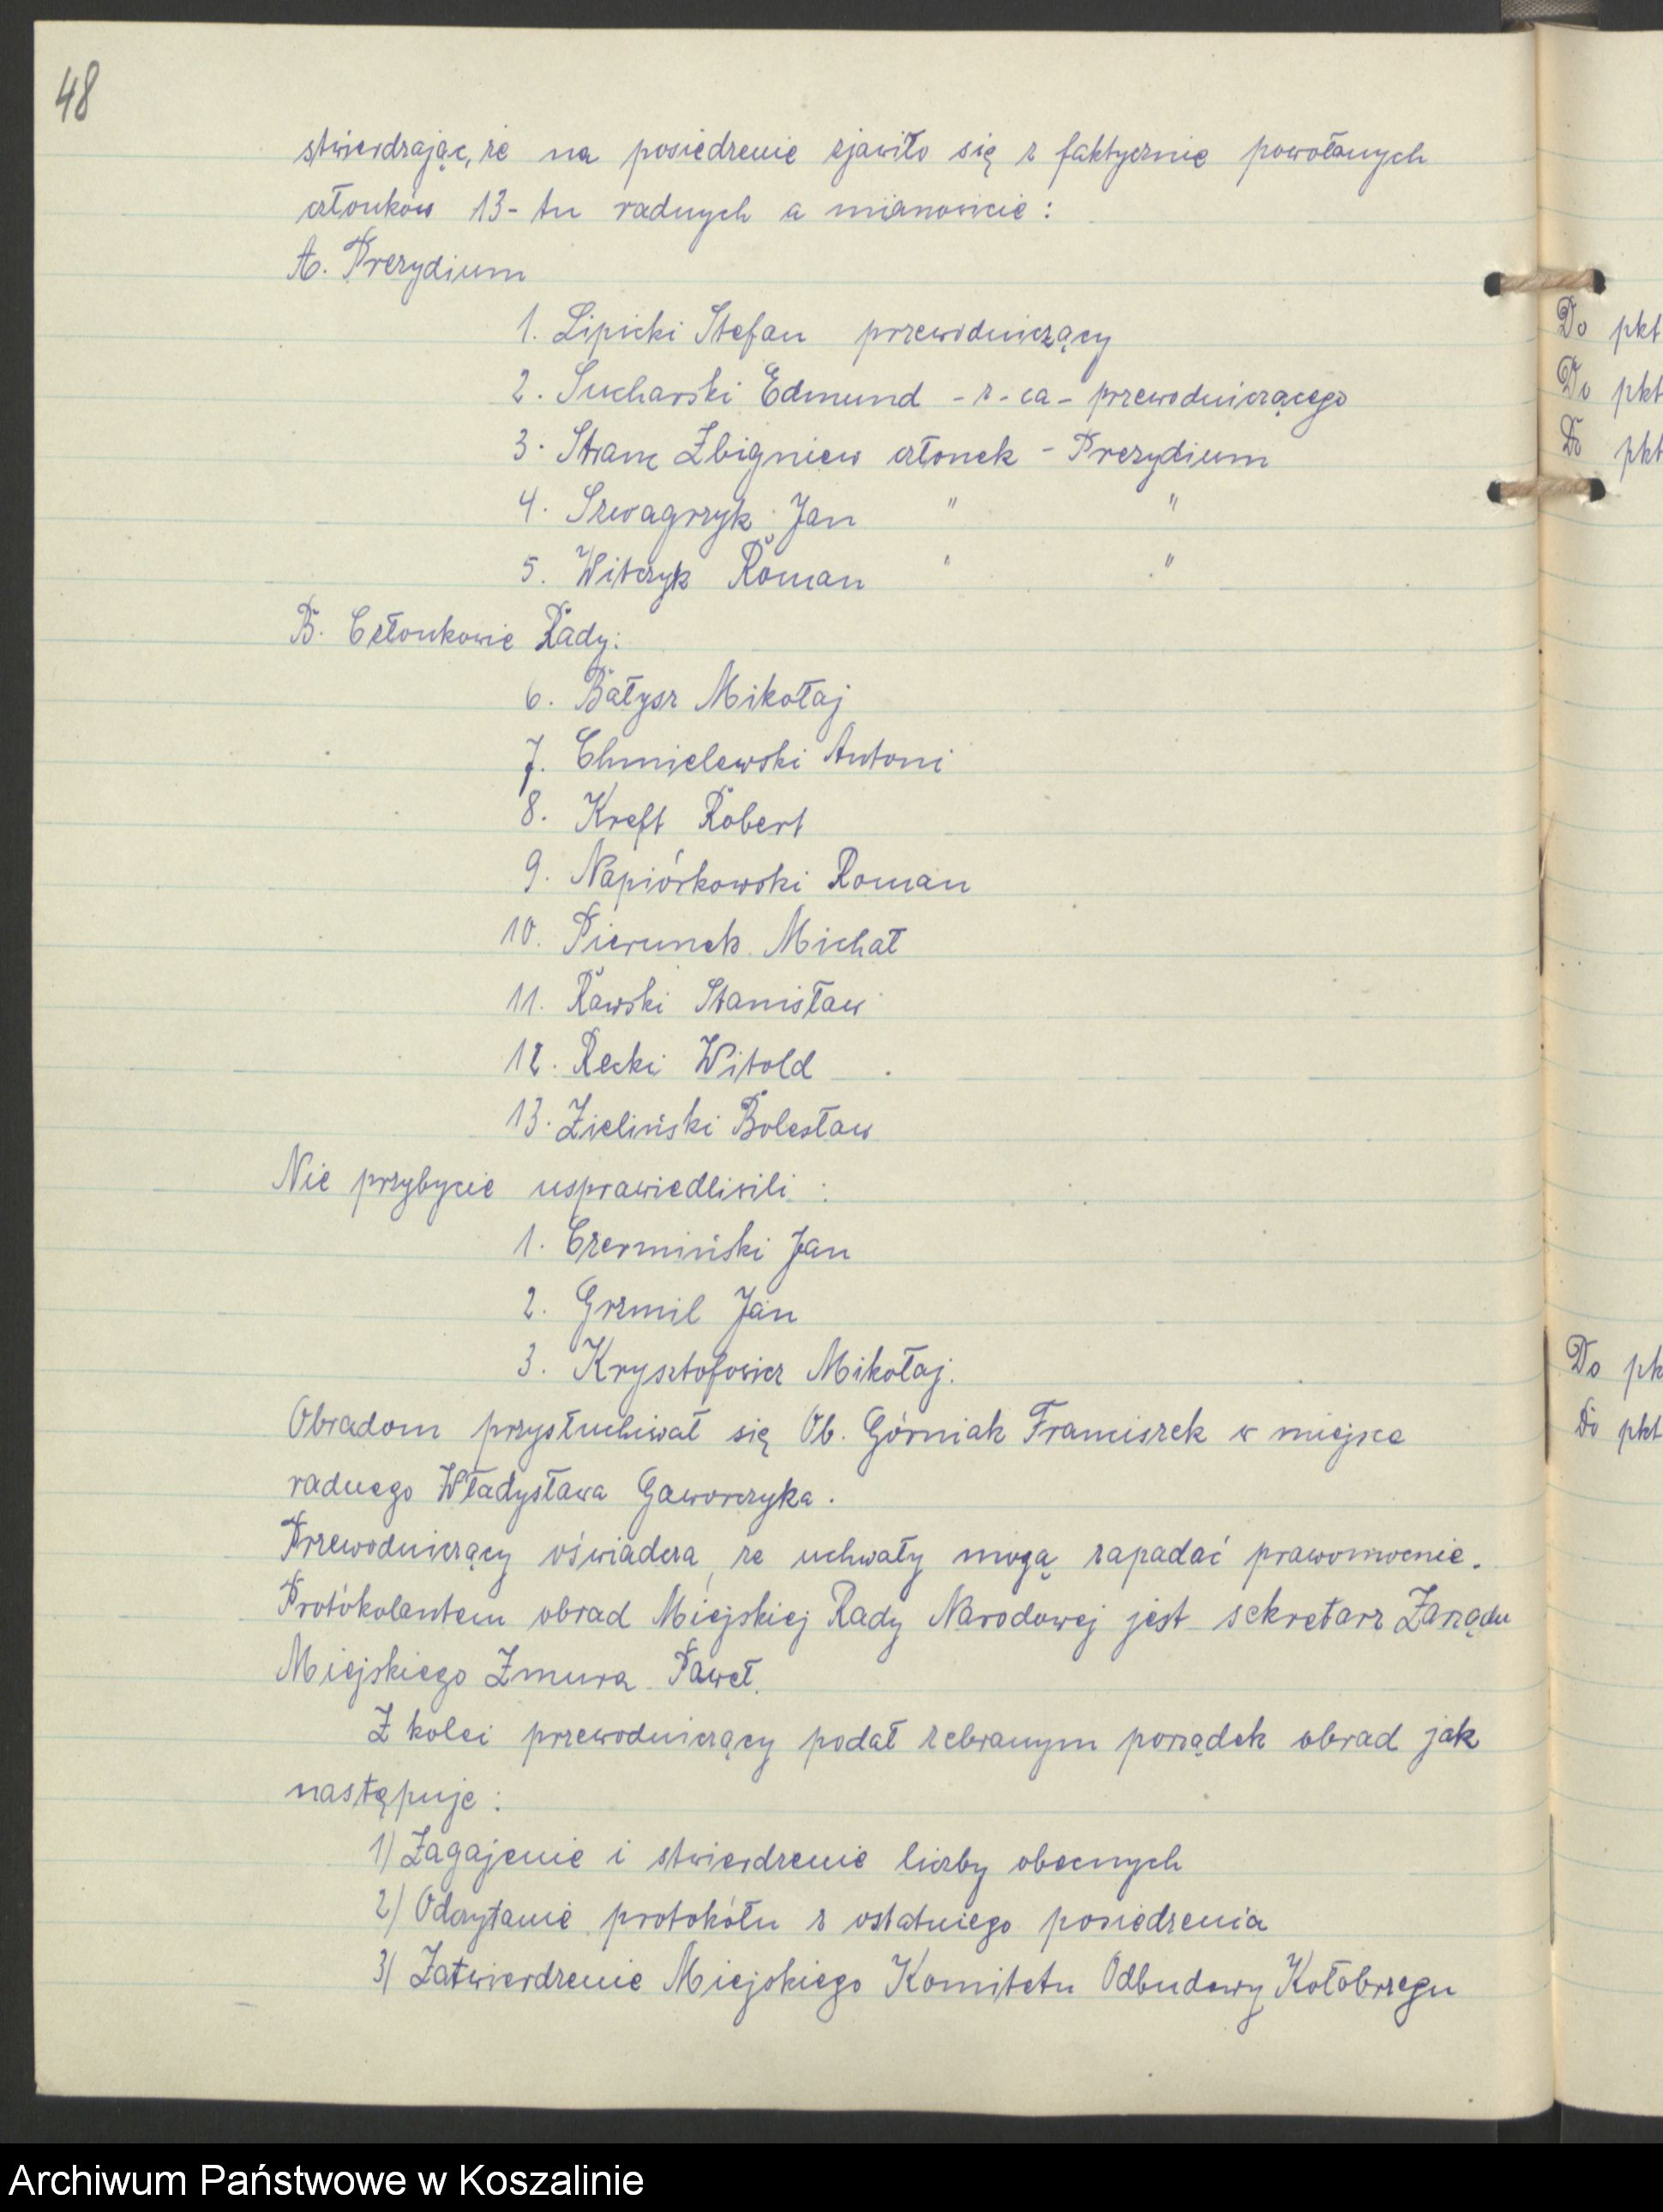 48
stwierdzając, że na posiedzenie zjawiło się z faktycznie powołanych
członków 13-tu radnych a mianowicie :
A. Prezydium
1. Lipicki Stefan przewodniczący
2. Sucharski Edmund - z-ca - przewodniczącego
3. Stranc Zbigniew członek - Prezydium
4. Szwagrzyk Jan " "
5. Witczyk Roman " "
B. Członkowie Rady:
6. Bałysz Mikołaj
7. Chmielewski Antoni
8. Kreft Robert
9. Napiórkowski Roman
10. Pierunek Michał
11. Rawski Stanisław
12. Recki Witold
13. Zieliński Bolesław
Nie przybycie usprawiedliwili :
1. Czermiński Jan
2. Grzmil Jan
3. Krysztofowicz Mikołaj.
Obradom przysłuchiwał się Ob. Górniak Franciszek w miejsce
radnego Władysława Gaworczyka.
Przewodniczący oświadcza, że uchwały mogą zapadać prawomocnie.
Protókolantem obrad Miejskiej Rady Narodowej jest sekretarz Zarządu
Miejskiego Zmura Paweł.
Z kolei przewodniczący podał zebranym porządek obrad jak
następuje :
1) Zagajenie i stwierdzenie liczby obecnych
2) Odczytanie protokółu z ostatniego posiedzenia
3) Zatwierdzenie Miejskiego Komitetu Odbudowy Kołobrzegu
Do pkt
Do pkt
Do pkt
Do pk
Do pkt
Archiwum Państwowe w Koszalinie